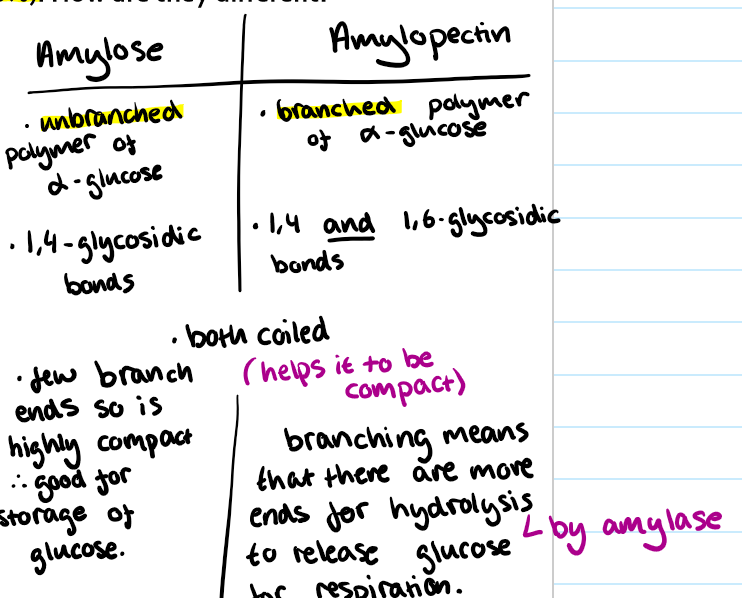 How are they different?
Amylose
Amylopectin
· unbranched
polymer of
α-glucose
· branched polymer
of α-glucose
· 1,4-glycosidic
bonds
· 1,4 and 1,6-glycosidic
bonds
· both coiled
(helps it to be
compact)
· few branch
ends so is
highly compact
∴ good for
storage of
glucose.
branching means
that there are more
ends for hydrolysis
by amylase
to release glucose
for respiration.